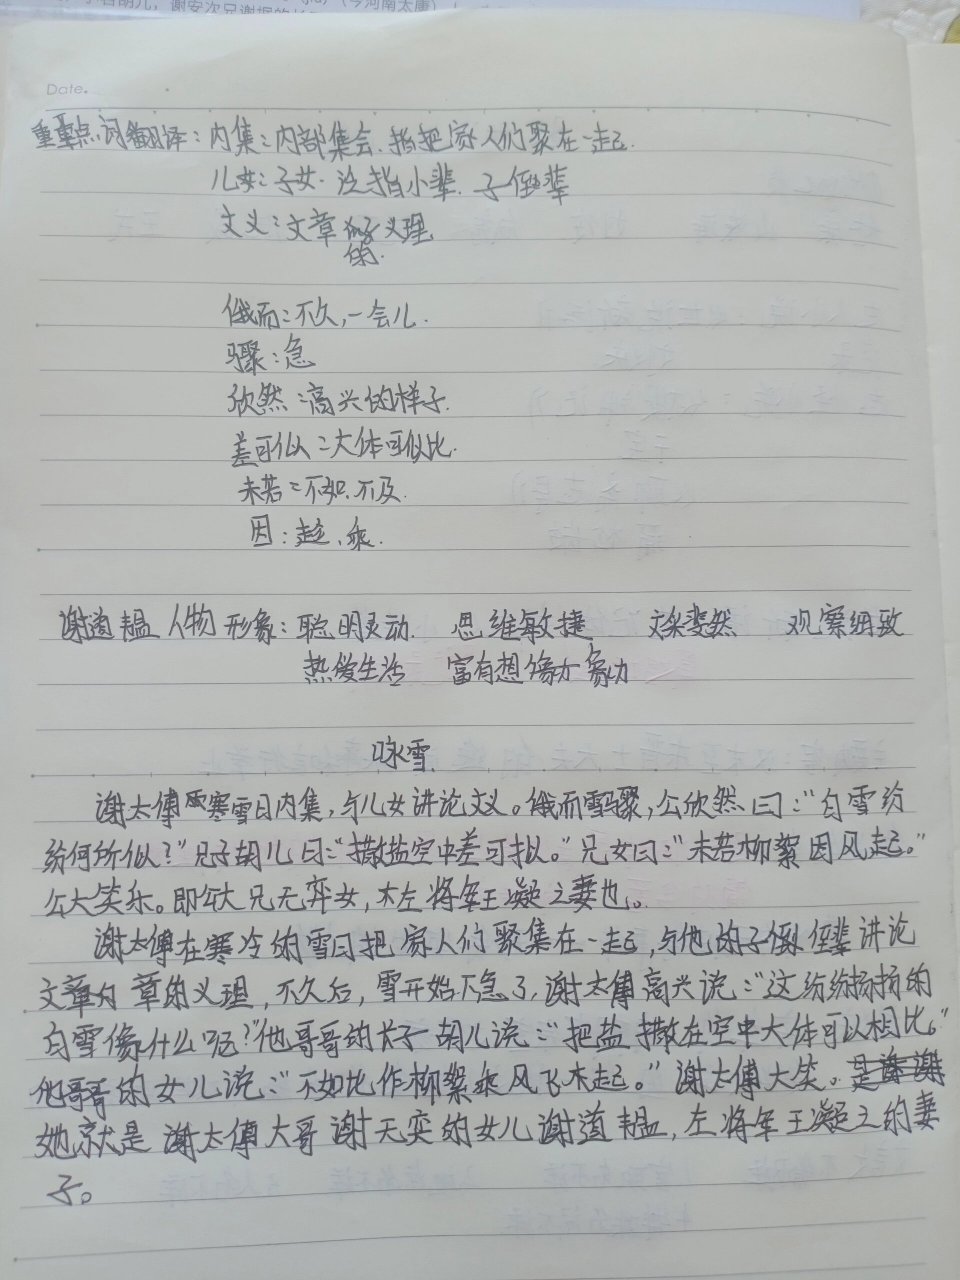 Date.
重点词翻译：内集：内部集会、指把家人们聚在一起.
儿女：子女.泛指小辈.子侄辈
文义：文章的义理
的.
俄而：不久,一会儿.
骤：急
欣然：高兴的样子.
差可似：大体可似比.
未若：不如.不及.
因：趁、乘.
谢道韫人物形象：聪明灵动 思维敏捷 文采斐然 观察细致
热爱生活 富有想像力 象力
咏雪
谢太傅寒雪日内集，与儿女讲论文义。俄而雪骤，公欣然曰：“白雪纷
纷何所似？”兄子胡儿曰：“撒盐空中差可拟。”兄女曰：“未若柳絮因风起。”
公大笑乐。即公大兄无弈女，左将军王凝之妻也。
谢太傅在寒冷的雪日把家人们聚集在一起，与他的子侄辈讲论
文章的义理，不久后，雪开始下急了，谢太傅高兴说：“这纷纷扬扬的
白雪像什么呢？”他哥哥的长子胡儿说：“把盐撒在空中大体可以相比。”
他哥哥的女儿说：“不如比作柳絮乘风飞木起。”谢太傅大笑。是谢
她就是谢太傅大哥谢无奕的女儿谢道韫，左将军王凝之的妻
子。